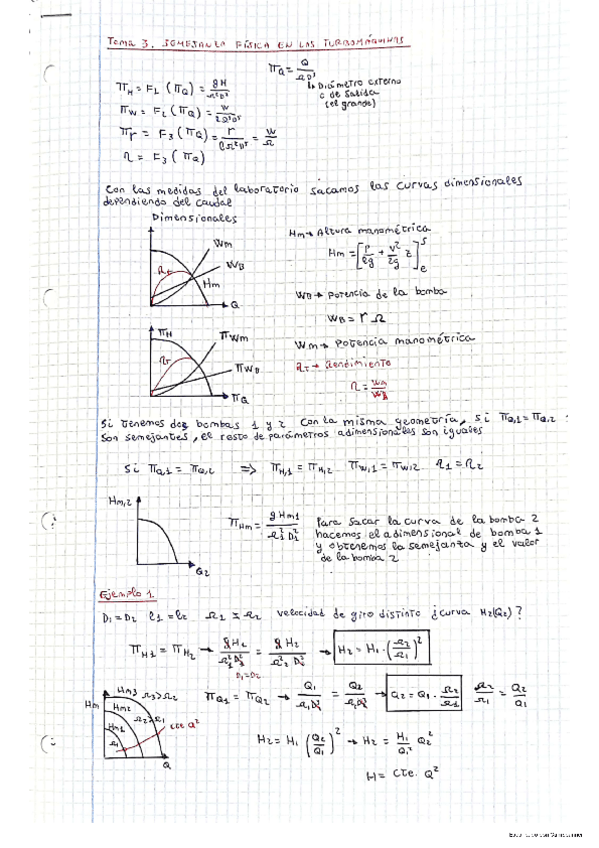 Tema 3. SEMEJANZA FÍSICA EN LAS TURBOMÁQUINAS
π_Q = Q / ΩD³
↳ Diámetro externo
o de salida
(el grande)
π_H = F₁ (π_Q) = gH / Ω²D²
π_W = F₂ (π_Q) = W / ρΩ³D⁵
π_r = F₃ (π_Q) = r / ρΩ²D⁵ = W / Ω
η = F₃ (π_Q)
Con las medidas del laboratorio sacamos las curvas dimensionales
dependiendo del caudal
Dimensionales
Wm
WB
Hm
ηT
Q
Hm → Altura manométrica
Hm = [P/ρg + v²/2g z]ₑˢ
WB → Potencia de la bomba
WB = r Ω
Wm → Potencia manométrica
ηT → Rendimiento
η = Wm / WB
πH
πWm
πWB
ηT
πQ
Si tenemos dos bombas 1 y 2 con la misma geometría, si πQ,1 = πQ,2
son semejantes, el resto de parámetros adimensionales son iguales
Si πQ,1 = πQ,2 ⇒ πH,1 = πH,2 πW,1 = πW,2 η1 = η2
Hm,2
Q2
πHm = gHm1 / Ω₁² D₁²
Para sacar la curva de la bomba 2
hacemos el adimensional de bomba 1
y obtenemos la semejanza y el valor
de la bomba 2
Ejemplo 1.
D1 = D2 ρ1 = ρ2 Ω1 ≠ Ω2 velocidad de giro distinto ¿curva H2(Q2)?
πH1 = πH2 → gH1 / Ω₁² D₁² = gH2 / Ω₂² D₂² → H2 = H1 · (Ω2/Ω1)²
D1=D2
πQ1 = πQ2 → Q1 / Ω1D₁³ = Q2 / Ω2D₂³ → Q2 = Q1 · Ω2/Ω1 Ω2/Ω1 = Q2/Q1
Hm
Hm3 Ω3>Ω2
Hm2 Ω2>Ω1
Hm1
Ω1
cte Q²
Q
H2 = H1 (Q2/Q1)² → H2 = H1/Q1² Q2²
H = cte. Q²